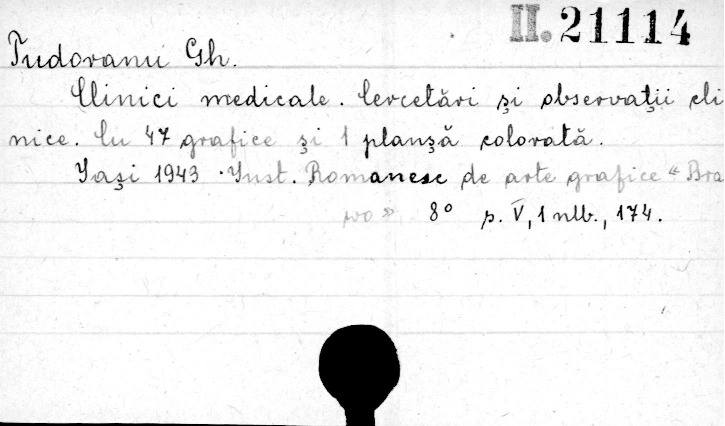 II. 21114
Tudoranu Gh.
Clinici medicale. Cercetări şi observaţii cli
nice. Cu 47 grafice şi 1 planşă colorată.
Iaşi 1943 . Inst. Romanesc de arte grafice « Bra
wo » 8° p. V, 1 nlb., 174.